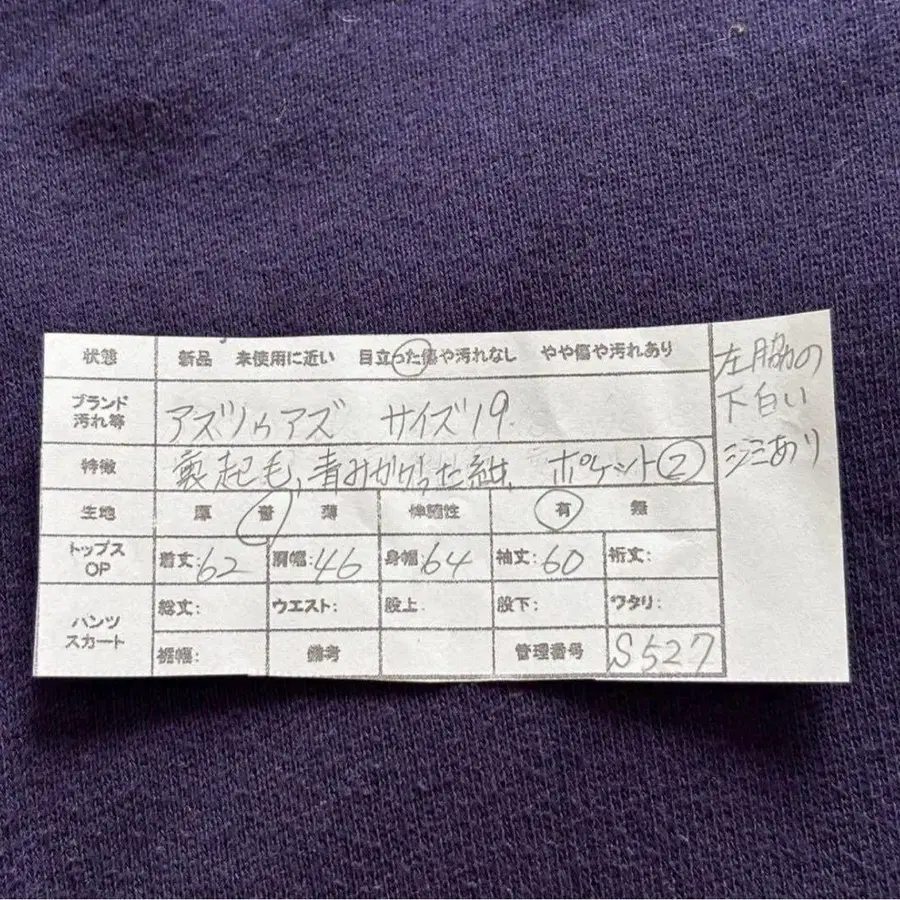 状態 新品 未使用に近い 目立った傷や汚れなし やや傷や汚れあり
ブランド
汚れ等
アズノゥアズ サイズ19.
特徴 裏起毛、青みがかった紺、 ポケット②
生地 厚 普 薄 伸縮性 有 無
トップス
OP
着丈:62 肩幅:46 身幅:64 袖丈:60 裄丈:
パンツ
スカート
総丈: ウエスト: 股上: 股下: ワタリ:
裾幅: 備考 管理番号 S527
左脇の
下白い
シミあり